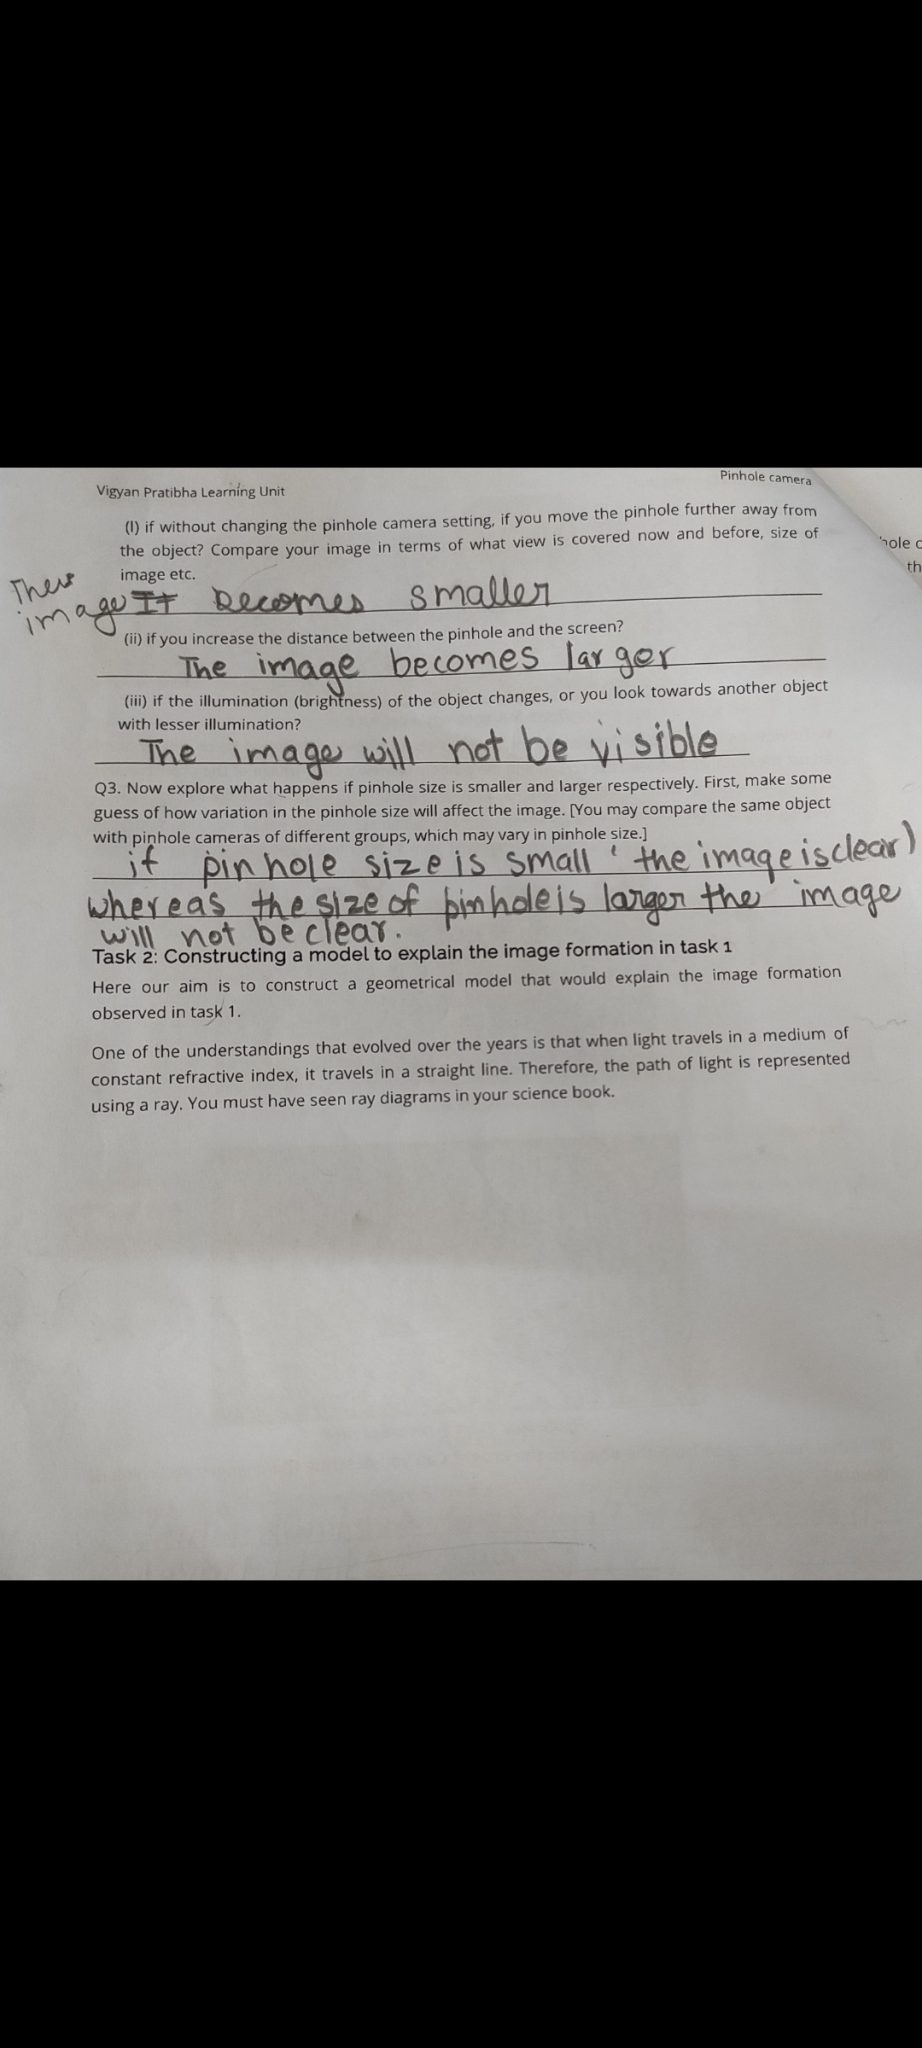 Pinhole camera
Vigyan Pratibha Learning Unit
(I) if without changing the pinhole camera setting, if you move the pinhole further away from
the object? Compare your image in terms of what view is covered now and before, size of
image etc.
The image It becomes smaller
(ii) if you increase the distance between the pinhole and the screen?
The image becomes larger
(iii) if the illumination (brightness) of the object changes, or you look towards another object
with lesser illumination?
The image will not be visible
Q3. Now explore what happens if pinhole size is smaller and larger respectively. First, make some
guess of how variation in the pinhole size will affect the image. [You may compare the same object
with pinhole cameras of different groups, which may vary in pinhole size.]
if pinhole size is small ' the image is clear)
whereas the size of pinhole is larger the image
will not be clear.
Task 2: Constructing a model to explain the image formation in task 1
Here our aim is to construct a geometrical model that would explain the image formation
observed in task 1.
One of the understandings that evolved over the years is that when light travels in a medium of
constant refractive index, it travels in a straight line. Therefore, the path of light is represented
using a ray. You must have seen ray diagrams in your science book.